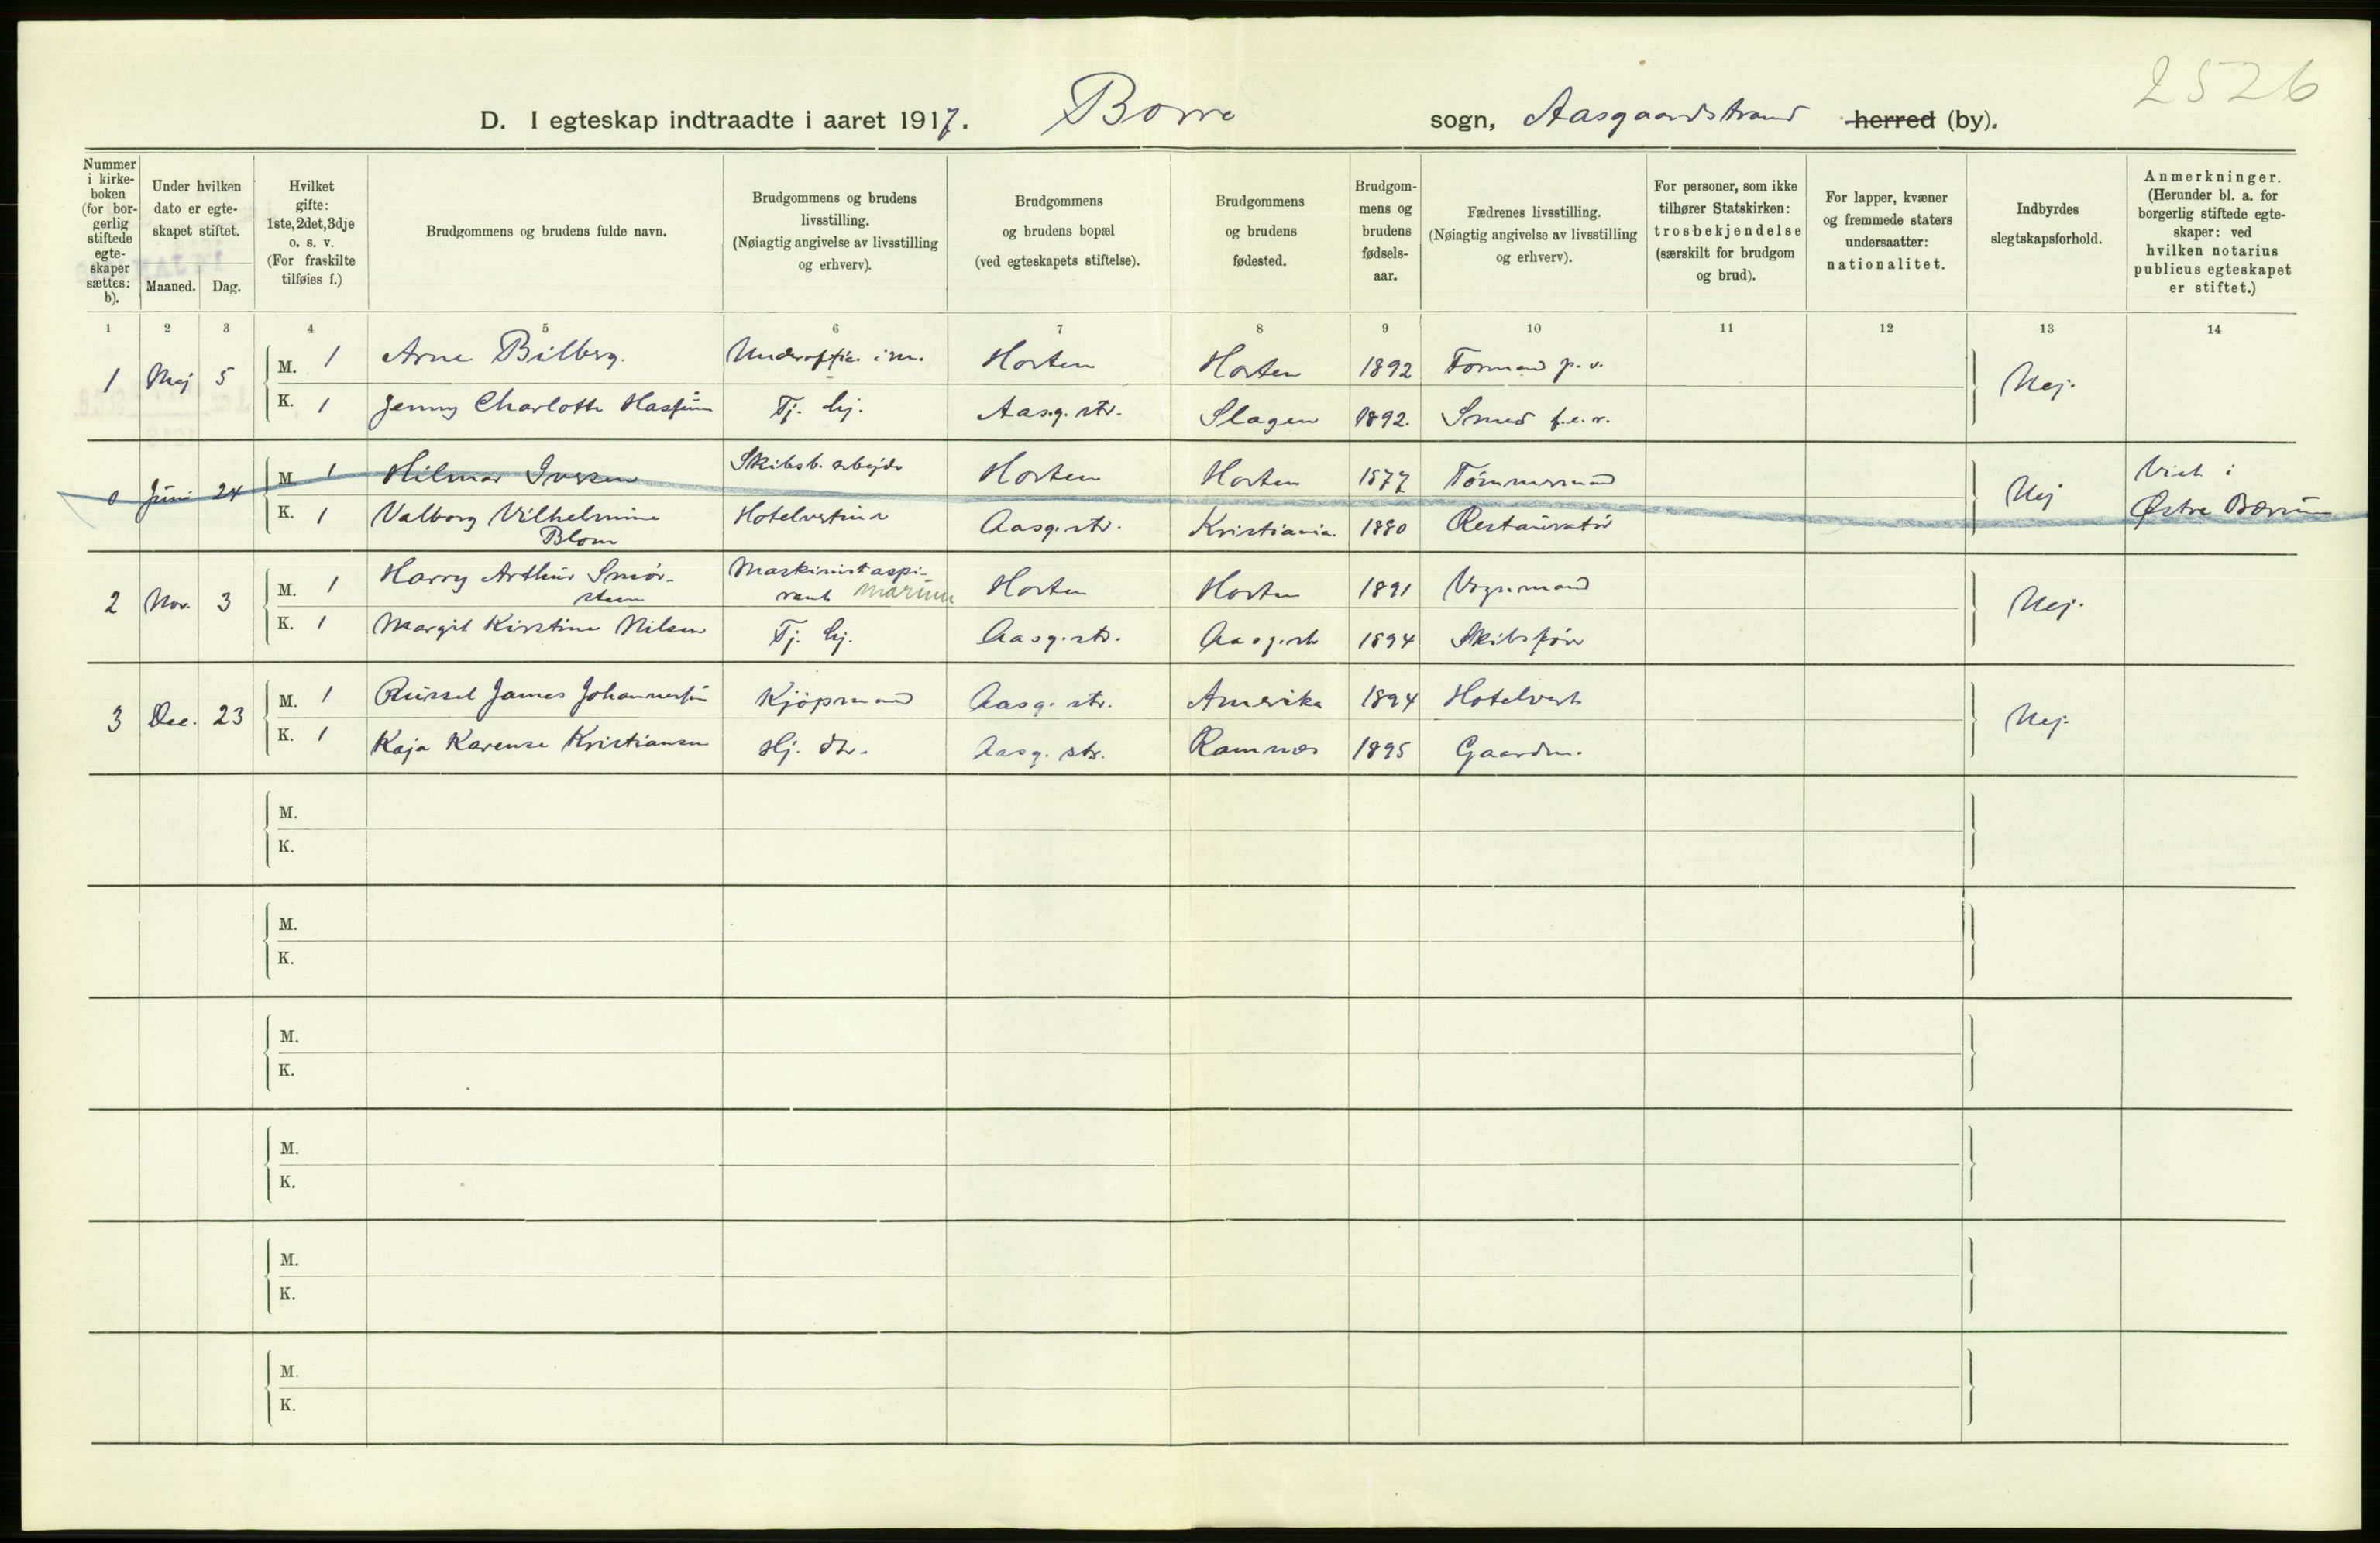 2526
D. I egteskap indtraadte i aaret 1917. Borre sogn, Aasgaardstrand herred (by).
Nummer i kirkeboken (for borgerlig stiftede egteskaper sættes: b).
Under hvilken dato er egteskapet stiftet.
Maaned. Dag.
Hvilket gifte: 1ste, 2det, 3dje o. s. v. (For fraskilte tilføies f.)
Brudgommens og brudens fulde navn.
Brudgommens og brudens livsstilling. (Nøiagtig angivelse av livsstilling og erhverv).
Brudgommens og brudens bopæl (ved egteskapets stiftelse).
Brudgommens og brudens fødested.
Brudgommens og brudens fødselsaar.
Fædrenes livsstilling. (Nøiagtig angivelse av livsstilling og erhverv).
For personer, som ikke tilhører Statskirken: trosbekjendelse (særskilt for brudgom og brud).
For lapper, kvæner og fremmede staters undersaatter: nationalitet.
Indbyrdes slegtskapsforhold.
Anmerkninger. (Herunder bl. a. for borgerlig stiftede egteskaper: ved hvilken notarius publicus egteskapet er stiftet.)
1 2 3 4 5 6 7 8 9 10 11 12 13 14
1 Maj 5 M. 1 Arne Bilberg. Underoffic. i m. Horten Horten 1892 Formand p. v. Nej.
K. 1 Jenny Charlotte Hasfun Tj. hj. Aasg. str. Slagen 1892. Smed f.e.v.
Juni 24 M. 1 Hilmar Iversen Skibsb. arbejdr Horten Horten 1877 Tømmermand Nej Viet i
K. 1 Valborg Vilhelmine Hotelvertinde Aasg. str. Kristiania 1880 Restauratør Østre Bærum
Blom
2 Nov. 3 M. 1 Harry Arthur Smør- Maskinistaspi- Horten Horten 1891 Vognmand Nej.
steen rant Marinen
K. 1 Margit Kirstine Nilsen Tj. hj. Aasg. str. Aasg. str 1894 Skibsfører
3 Dec. 23 M. 1 Russel James Johannessen Kjøpmand Aasg. str. Amerika 1894 Hotelvert Nej.
K. 1 Kaja Karense Kristiansen Hj. dtr. Aasg. str. Ramnes 1895 Gaardm.
M.
K.
M.
K.
M.
K.
M.
K.
M.
K.
M.
K.